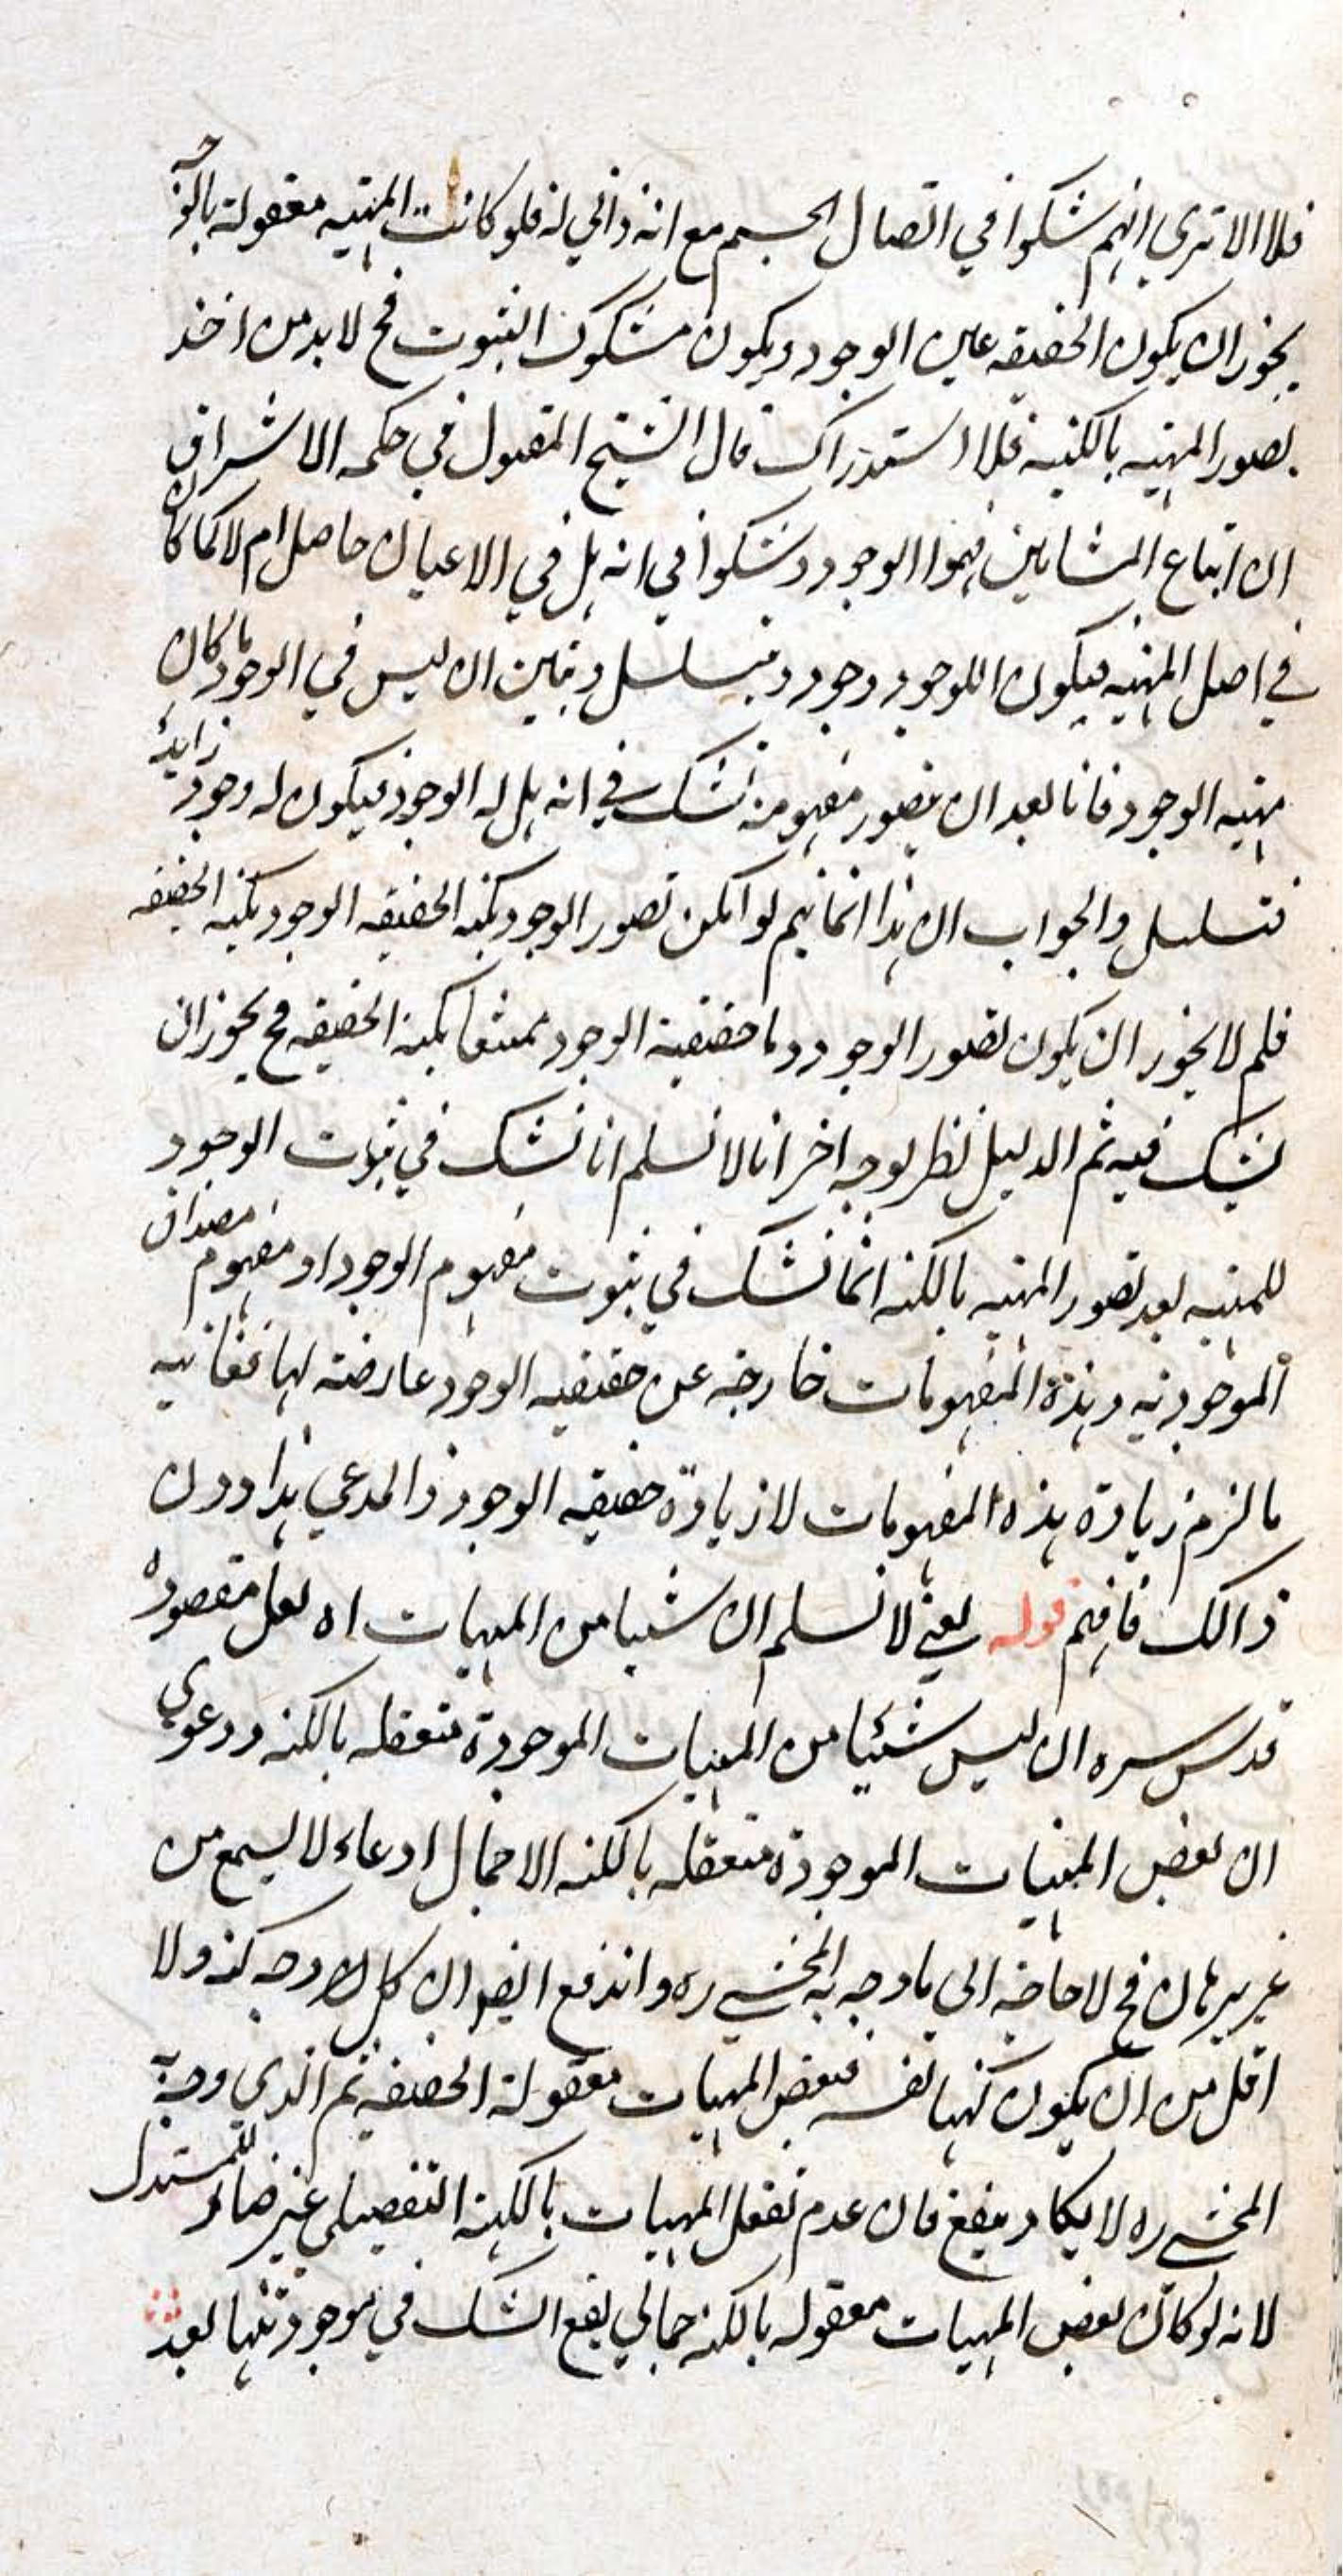 فلا الا ترى انهم شكوا في اتصال الجسم مع انه ذاتي له فلو كانت المهية معقولة بالوجه
يجوز ان يكون الحقيقه عين الوجود ويكون مشكوك الثبوت فح لا بد من اخذ
تصور المهيه بالكنه فلا استدراك قال الشيخ المقتول في حكمه الاشراق
ان اتباع المشايين فهموا الوجود وشكوا في انه هل في الاعيان حاصل ام لا كما كان
في اصل المهيه فيكون اللوجود وجود ويتسلسل وتبين ان ليس في الوجود ما كان
مهيه الوجود فانا بعد ان نتصور مفهومه نشك في انه هل له الوجود فيكون له وجود زايد
فتسلسل والجواب ان هذا انما يتم لو امكن تصور الوجود بكنه الحقيقه الوجود بكنه الحقيقه
فلم لا يجوز ان يكون تصور الوجود وما حقيقية الوجود ممتنعا بكنه الحقيقه فح يجوز ان
يشك فيه ثم الدليل نظر بوجه اخر انا لا نسلم انا نشك في ثبوت الوجود
للمهيه بعد تصور المهيه بالكنه انما نشك في ثبوت مفهوم الوجود او مفهوم مصداق
الموجوديه وهذه المفهومات خارجه عن حقيقيه الوجود عارضته لها فغاتيه
ما لزم زيادة هذه المفهومات لا زيادة حقيقه الوجود والمدعي هذا دون
ذالك فافهم قوله يعني لا نسلم ان شيا من المهيات اه لعل مقصوده
قدس سره ان ليس شيئا من المهيات الموجودة متعقله بالكنه ودعوي
ان بعض المهيات الموجودة متعقله بالكنه الاجمال ادعاء لا يسمع من
غير برهان فح لا حاجه الى ما وجه به المحشى ره واندفع ايضا ان كل لا وجه كنه ولا
اقل من ان يكون كنها لنفسه فبعض المهيات معقولة الحقيقه ثم الذي وجه به
المحشى ره لا يكاد ينفع فان عدم تعقل المهيات بالكنه التفصيلي غير ضار للمستدل
لانه لو كان بعض المهيات معقوله بالكنه جمالي يقع الشك في موجوديتها بعد